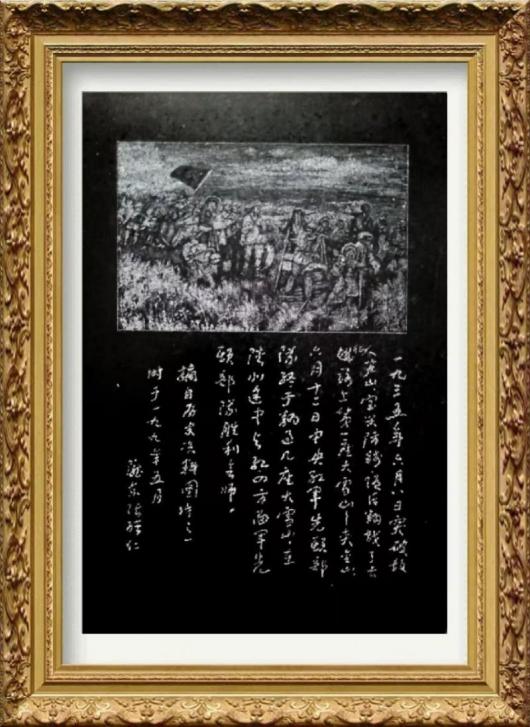 一九三五年六月八日突破敌
人芦山宝兴防线随后翻越了长
征路上第一座大雪山－夹金山
六月十二日中央红军先头部
队终于翻过几座大雪山在
懋功途中与红四方面军先
头部队胜利会师。
摘自历史资料图片之一
时于一九九　年五月